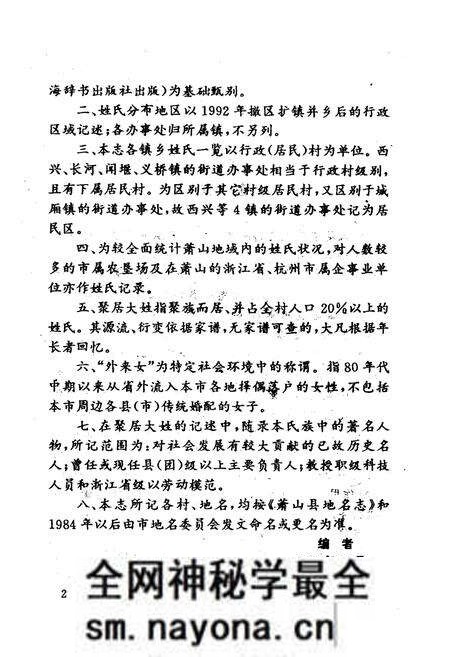 海辞书出版社出版)为基础甄别。
二、姓氏分布地区以1992年撤区扩镇并乡后的行政
区域记述;各办事处归所属镇,不另列。
三、本志各镇乡姓氏一览以行政(居民)村为单位。西
兴、长河、闻堰、义桥镇的街道办事处相当于行政村级别,
且有下属居民村。为区别于其它村级居民村,又区别于城
厢镇的街道办事处,故西兴等4镇的街道办事处记为居
民区。
四、为较全面统计萧山地域内的姓氏状况,对人数较
多的市属农垦场及在萧山的浙江省、杭州市属企事业单
位亦作姓氏记录。
五、聚居大姓指聚族而居、并占全村人口20%以上的
姓氏。其源流、衍变依据家谱,无家谱可查的,大凡根据年
长者回忆。
六、“外来女”为特定社会环境中的称谓。指80年代
中期以来从省外流入本市各地择偶落户的女性,不包括
本市周边各县(市)传统婚配的女子。
七、在聚居大姓的记述中,随录本氏族中的著名人
物,所记范围为:对社会发展有较大贡献的已故历史名
人;曾任或现任县(团)级以上主要负责人;教授职级科技
人员和浙江省级以劳动模范。
八、本志所记各村、地名,均按《萧山县地名志》和
1984年以后由市地名委员会发文命名或更名为准。
编者
2
全网神秘学最全
sm.nayona.cn